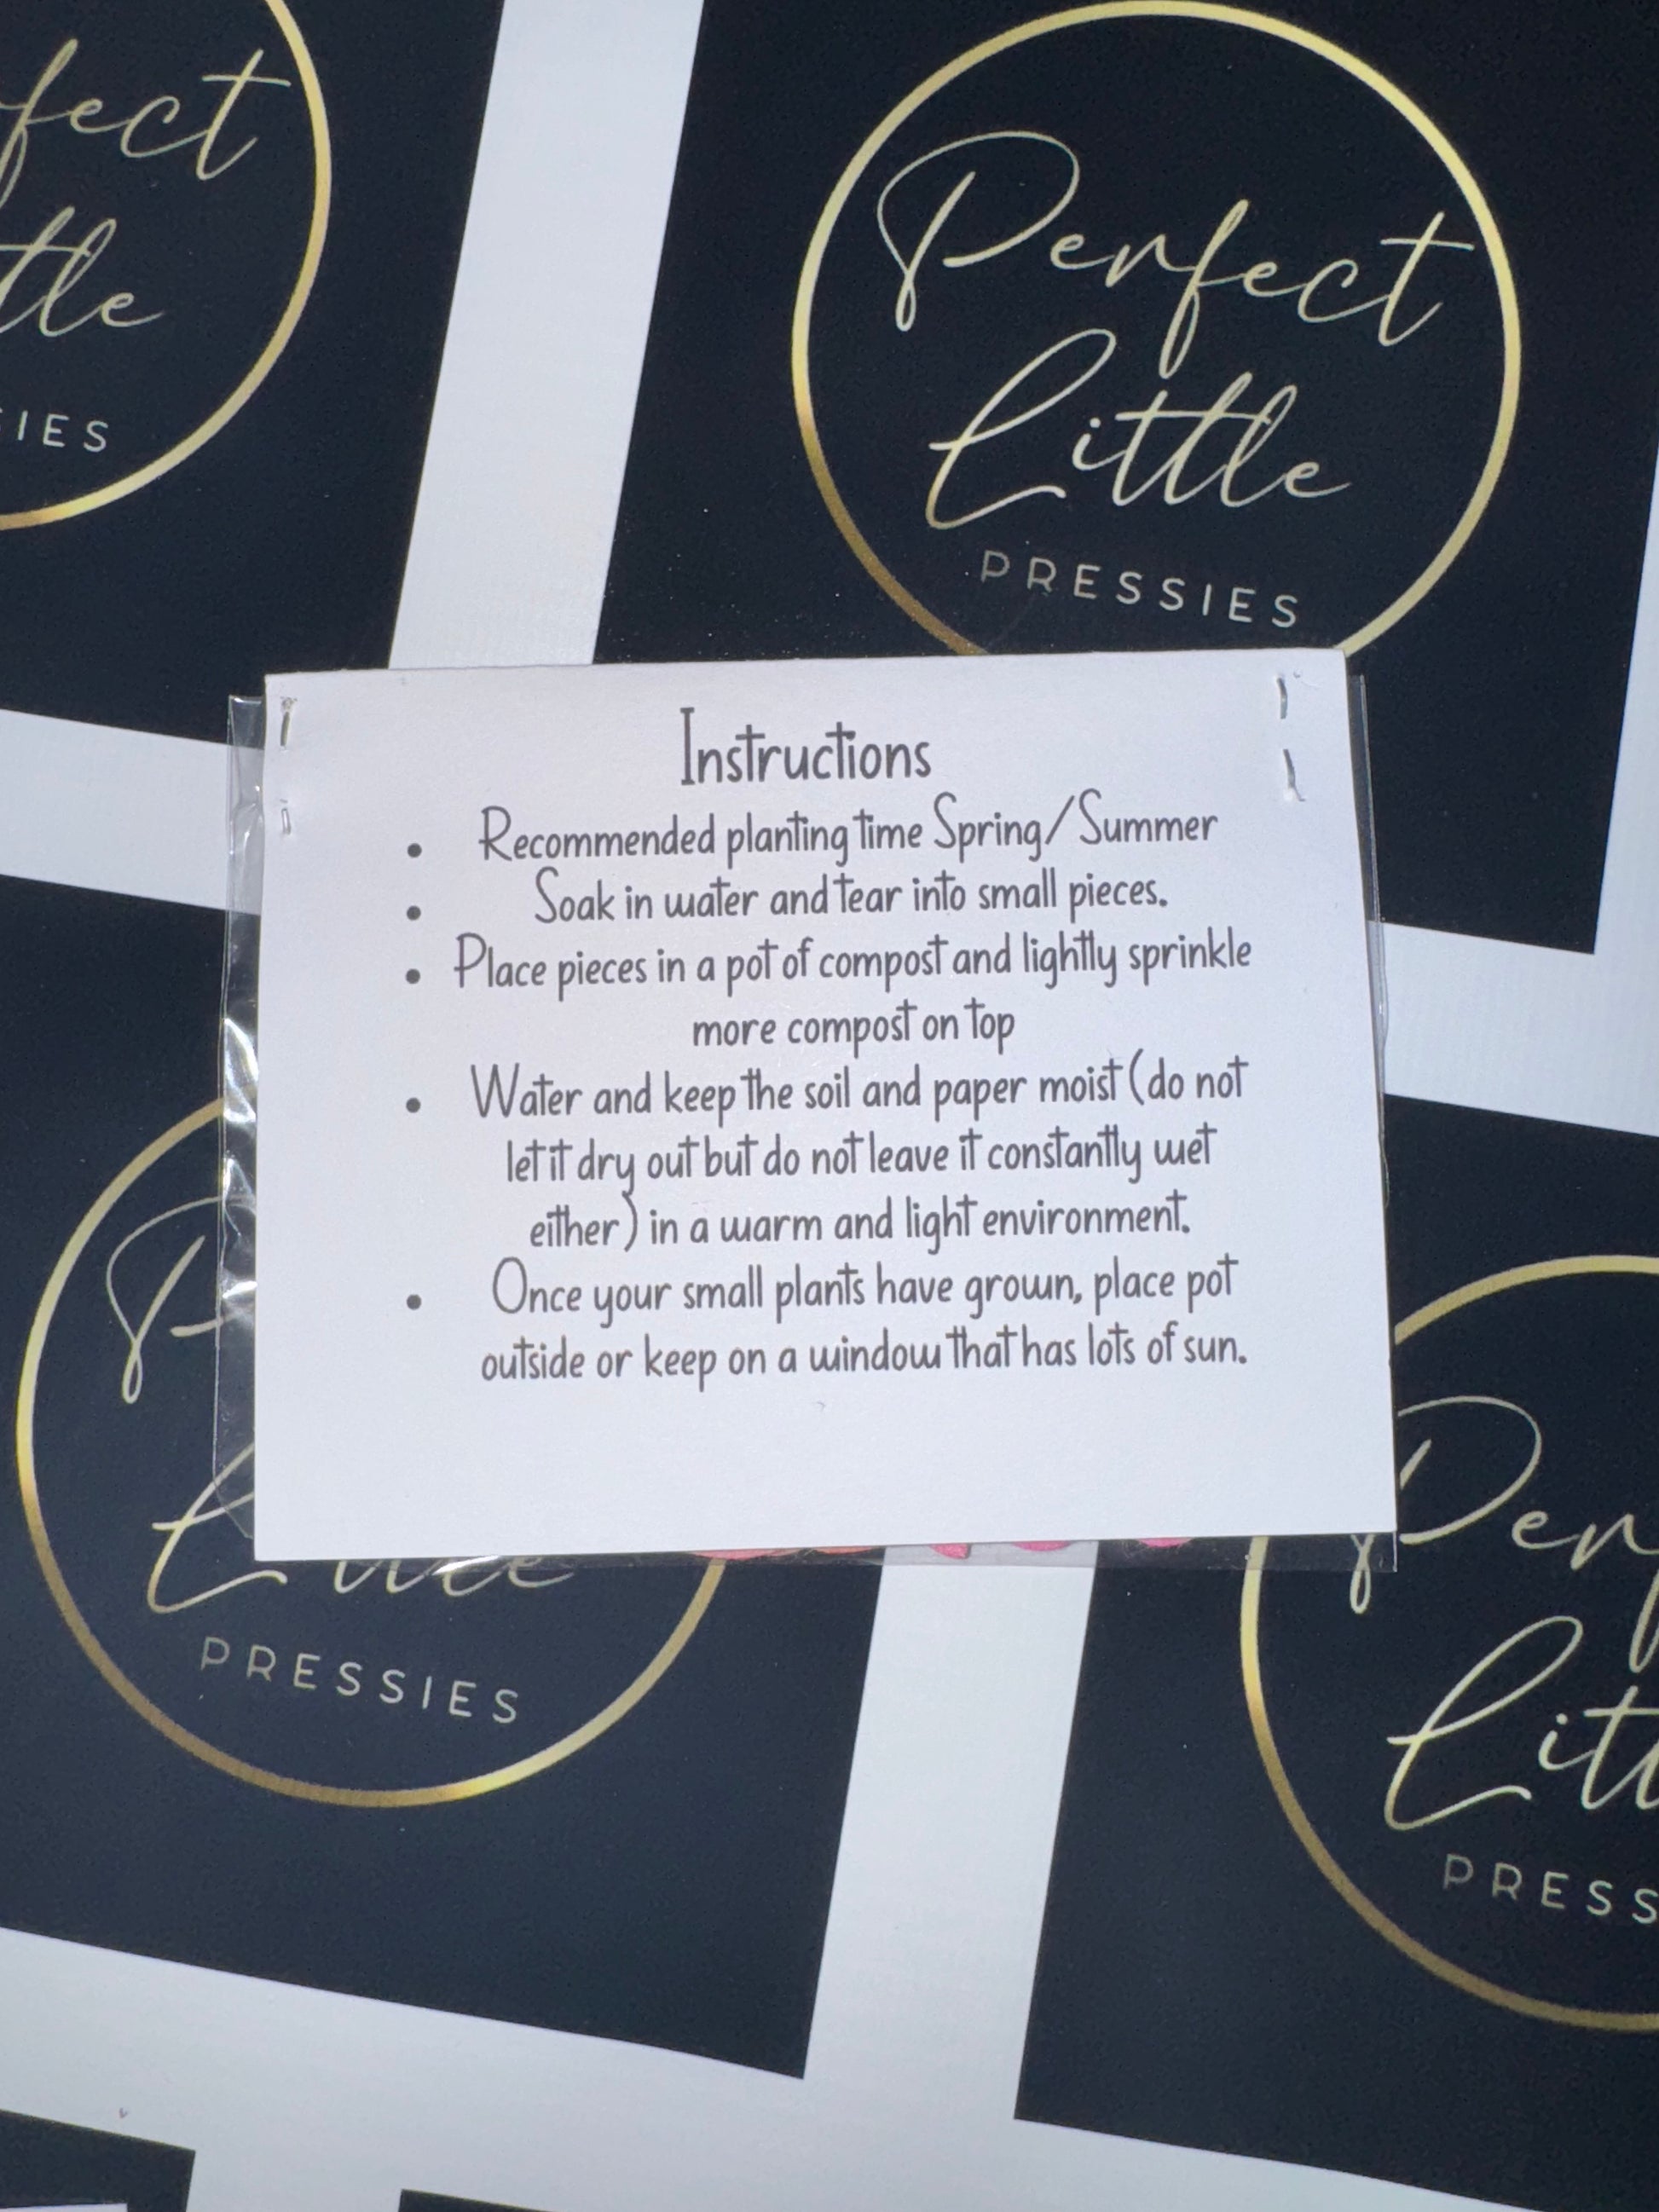 fect
ttle
SIES
Perfect
Little
PRESSIES
Instructions
• Recommended planting time Spring/Summer
• Soak in water and tear into small pieces.
• Place pieces in a pot of compost and lightly sprinkle
more compost on top
• Water and keep the soil and paper moist (do not
let it dry out but do not leave it constantly wet
either) in a warm and light environment.
• Once your small plants have grown, place pot
outside or keep on a window that has lots of sun.
P
Little
PRESSIES
Per
Litt
PRESS